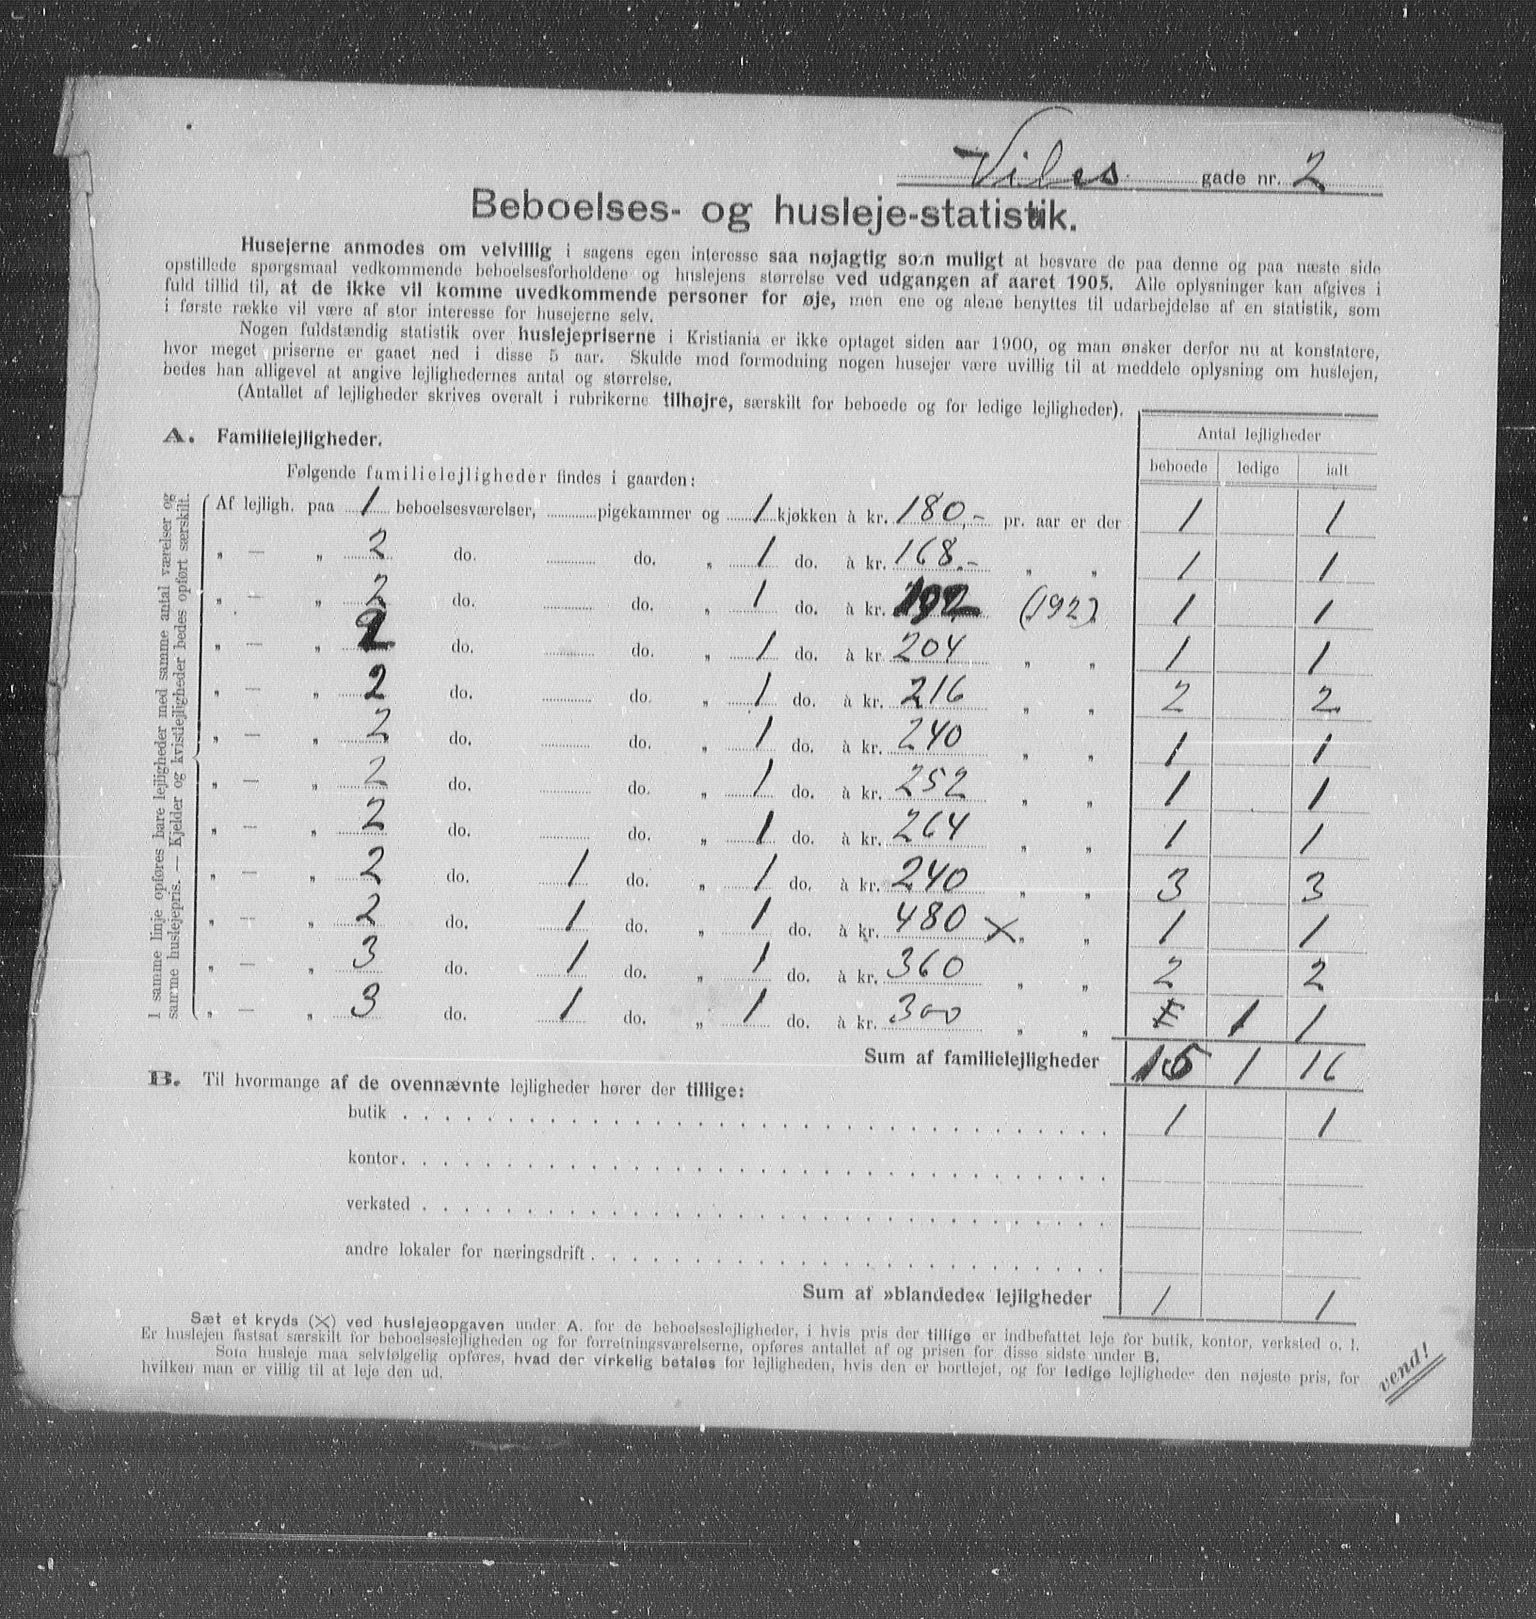 Vibes gade nr. 2
Beboelses- og husleje-statistik.
Husejerne anmodes om velvillig i sagens egen interesse saa nøjagtig som muligt at besvare de paa denne og paa næste side
opstillede spørgsmaal vedkommende beboelsesforholdene og huslejens størrelse ved udgangen af aaret 1905. Alle oplysninger kan afgives i
fuld tillid til, at de ikke vil komme uvedkommende personer for øje, men ene og alene benyttes til udarbejdelse af en statistik, som
i første række vil være af stor interesse for husejerne selv.
Nogen fuldstændig statistik over huslejepriserne i Kristiania er ikke optaget siden aar 1900, og man ønsker derfor nu at konstatere,
hvor meget priserne er gaaet ned i disse 5 aar. Skulde mod formodning nogen husejer være uvillig til at meddele oplysning om huslejen,
bedes han alligevel at angive lejlighedernes antal og størrelse.
(Antallet af lejligheder skrives overalt i rubrikerne tilhøjre, særskilt for beboede og for ledige lejligheder).
A. Familielejligheder.
Antal lejligheder
Følgende familielejligheder findes i gaarden:
beboede ledige ialt
I samme linje opføres bare lejligheder med samme antal værelser og
samme huslejepris. — Kjelder og kvistlejligheder bedes opført særskilt.
Af lejligh. paa 1 beboelsesværelser, pigekammer og 1 kjøkken à kr. 180,- pr. aar er der 1 1
„ — „ 2 do. do. „ 1 do. à kr. 168.- „ „ 1 1
„ — „ 2 do. do. „ 1 do. à kr. 192 (192) 1 1
„ — „ 2 do. do. „ 1 do. à kr. 204 „ „ 1 1
„ — „ 2 do. do. „ 1 do. à kr. 216 „ „ 2 2
„ — „ 2 do. do. „ 1 do. à kr. 240 „ „ 1 1
„ — „ 2 do. do. „ 1 do. à kr. 252 „ „ 1 1
„ — „ 2 do. do. „ 1 do. à kr. 264 „ „ 1 1
„ — „ 2 do. 1 do. „ 1 do. à kr. 240 „ „ 3 3
„ — „ 2 do. 1 do. „ 1 do. à kr. 480 X „ „ 1 1
„ — „ 3 do. 1 do. „ 1 do. à kr. 360 „ „ 2 2
„ — „ 3 do. 1 do. „ 1 do. à kr. 300 „ „ 1 1
Sum af familielejligheder 15 1 16
B. Til hvormange af de ovennævnte lejligheder hører der tillige:
butik 1 1
kontor
verksted
andre lokaler for næringsdrift
Sum af »blandede« lejligheder 1 1
Sæt et kryds (X) ved huslejeopgaven under A. for de beboelseslejligheder, i hvis pris der tillige er indbefattet leje for butik, kontor, verksted o. l.
Er huslejen fastsat særskilt for beboelseslejligheden og for forretningsværelserne, opføres antallet af og prisen for disse sidste under B.
Som husleje maa selvfølgelig opføres, hvad der virkelig betales for lejligheden, hvis den er bortlejet, og for ledige lejligheder den nøjeste pris, for
hvilken man er villig til at leje den ud.
vend!